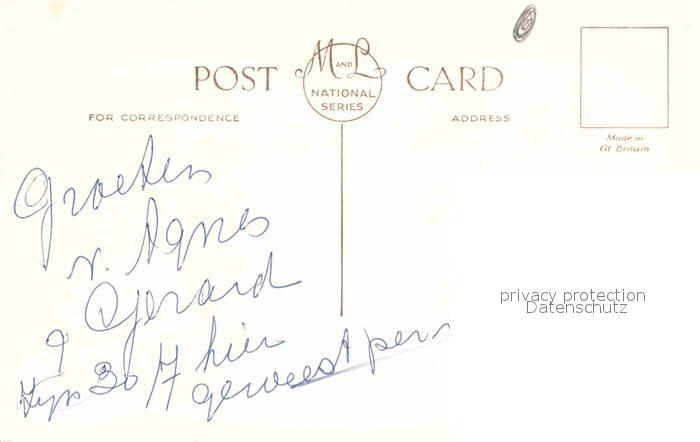 POST CARD
M AND L
NATIONAL
SERIES
FOR CORRESPONDENCE
ADDRESS
Made in
Gt Britain
Groeten
v. Agnes
Gerard
30/7 hier
geweest per
privacy protection
Datenschutz